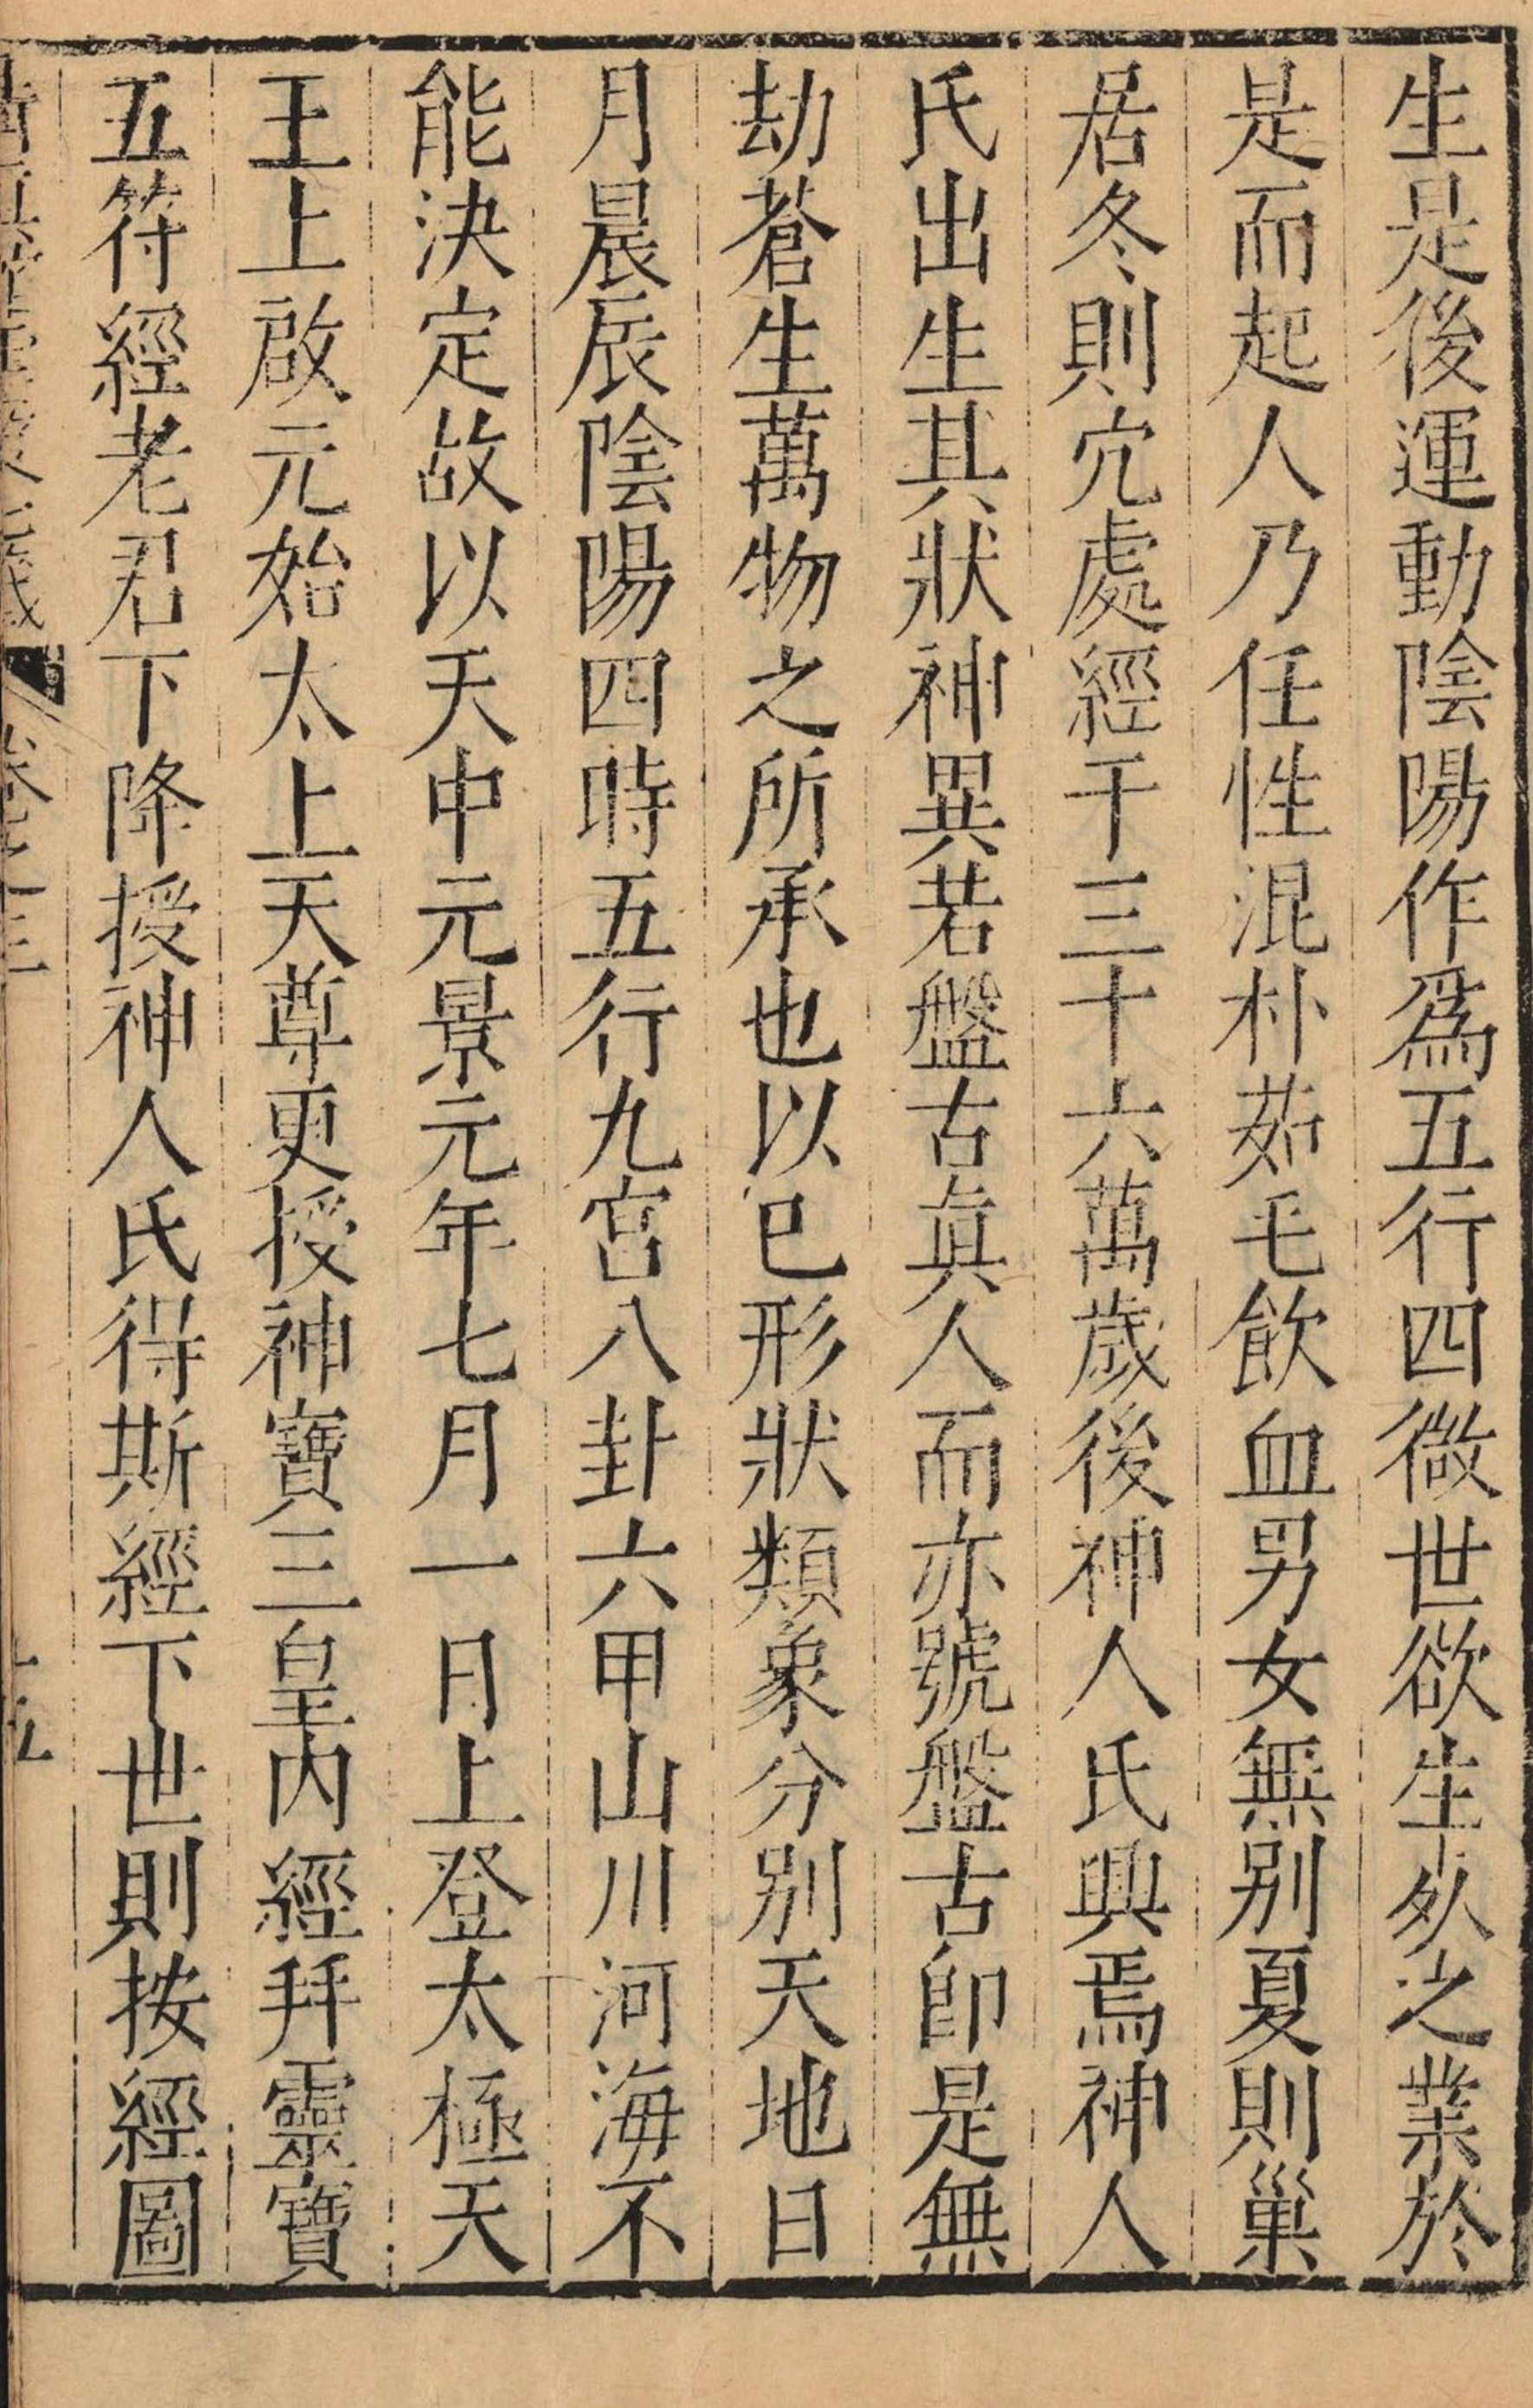 生是後運動陰陽作爲五行四微世欲生死之業於
是而起人乃任性混朴茹毛飲血男女無别夏則巢
居冬則穴處經于三十六萬歲後神人氏興焉神人
氏出生其狀神異若盤古眞人而亦號盤古卽是無
劫蒼生萬物之所承也以已形狀類象分别天地日
月晨辰陰陽四時五行九宮八卦六甲山川河海不
能決定故以天中元景元年七月一日上登太極天
王上啟元始太上天尊更授神寶三皇内經拜靈寶
五符經老君下降授神人氏得斯經下世則按經圖
卷之三